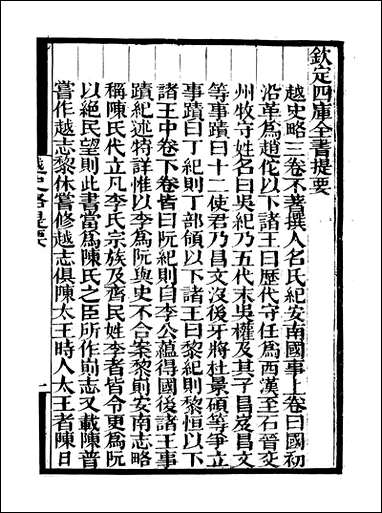 欽定四庫全書提要
越史略三卷不著撰人名氏紀安南國事上卷曰國初
沿革為趙佗以下諸王曰歷代守任為西漢至石晉交
州牧守姓名曰吳紀乃五代末吳權及其子昌岌昌文
等事蹟曰十二使君乃昌文沒後牙將杜景碩等爭立
事蹟曰丁紀則丁部領以下諸王曰黎紀則黎恒以下
諸王中卷下卷皆曰阮紀則自李公蘊得國後諸王事
蹟紀述特詳惟以李為阮與史不合案黎崱安南志略
稱陳氏代立凡李氏宗族及齊民姓李者皆令更為阮
以絕民望則此書當為陳氏之臣所作崱志又載陳普
嘗作越志黎休嘗修越志俱陳太王時人太王者陳日
越史略提要
一